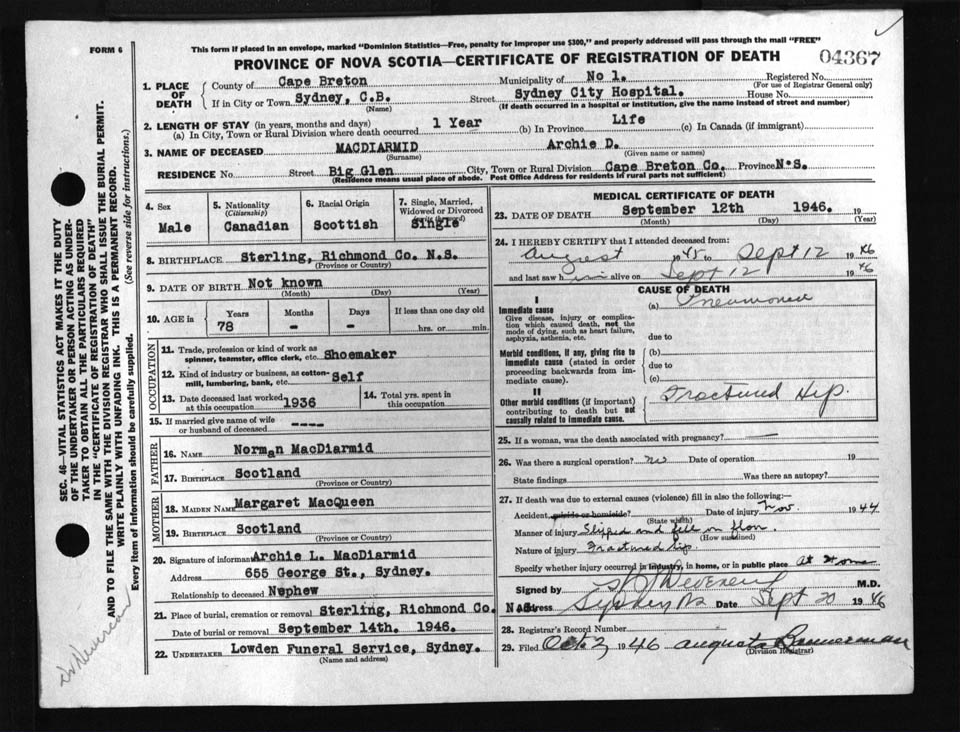 FORM 6
This form if placed in an envelope, marked "Dominion Statistics—Free, penalty for improper use $300," and properly addressed will pass through the mail "FREE"
PROVINCE OF NOVA SCOTIA—CERTIFICATE OF REGISTRATION OF DEATH
04367
1. PLACE OF DEATH
County of Cape Breton Municipality of No 1. Registered No.
(For use of Registrar General only)
If in City or Town Sydney, C.B. Street Sydney City Hospital. House No.
(Name) (If death occurred in a hospital or institution, give the name instead of street and number)
2. LENGTH OF STAY (in years, months and days)
(a) In City, Town or Rural Division where death occurred 1 Year (b) In Province Life (c) In Canada (if immigrant)
3. NAME OF DECEASED MACDIARMID Archie D.
(Surname) (Given name or names)
RESIDENCE No. Street Big Glen City, Town or Rural Division Cape Breton Co. Province N.S.
(Residence means usual place of abode. Post Office Address for residents in rural parts not sufficient)
4. Sex
Male
5. Nationality
(Citizenship)
Canadian
6. Racial Origin
Scottish
7. Single, Married, Widowed or Divorced
(write the word)
Single
8. BIRTHPLACE Sterling, Richmond Co. N.S.
(Province or Country)
9. DATE OF BIRTH Not known
(Month) (Day) (Year)
10. AGE in
Years Months Days If less than one day old
78 - - hrs. or min.
OCCUPATION
11. Trade, profession or kind of work as spinner, teamster, office clerk, etc. Shoemaker
12. Kind of industry or business, as cotton-mill, lumbering, bank, etc. Self
13. Date deceased last worked at this occupation 1936
14. Total yrs. spent in this occupation
15. If married give name of wife or husband of deceased ----
FATHER
16. NAME Norman MacDiarmid
17. BIRTHPLACE Scotland
(Province or Country)
MOTHER
18. MAIDEN NAME Margaret MacQueen
19. BIRTHPLACE Scotland
(Province or Country)
20. Signature of informant Archie L. MacDiarmid
Address 655 George St., Sydney.
Relationship to deceased Nephew
21. Place of burial, cremation or removal Sterling, Richmond Co. N.S.
Date of burial or removal September 14th. 1946.
22. UNDERTAKER Lowden Funeral Service, Sydney.
(Name and address)
MEDICAL CERTIFICATE OF DEATH
23. DATE OF DEATH September 12th 1946. 19
(Month) (Day) (Year)
24. I HEREBY CERTIFY that I attended deceased from:
August 1945 to Sept 12 1946
and last saw him alive on Sept 12 1946
CAUSE OF DEATH
I
Immediate cause
Give disease, injury or complication which caused death, not the mode of dying, such as heart failure, asphyxia, asthenia, etc.
(a) Pneumonia
due to
Morbid conditions, if any, giving rise to immediate cause (stated in order proceeding backwards from immediate cause).
(b)
due to
(c)
II
Other morbid conditions (if important) contributing to death but not causally related to immediate cause.
Fractured Hip.
25. If a woman, was the death associated with pregnancy? —
26. Was there a surgical operation? no Date of operation 19
State findings Was there an autopsy?
27. If death was due to external causes (violence) fill in also the following:—
Accident, suicide or homicide? Date of injury Nov. 1944
(State which)
Manner of injury Slipped and fell on floor.
(How sustained)
Nature of injury Fractured hip.
Specify whether injury occurred in industry, in home, or in public place At Home
Signed by M.D.
Address Sydney NS Date Sept 20 1946
28. Registrar's Record Number
29. Filed Oct. 2 1946 Augusta Bannerman
(Division Registrar)
SEC. 46—VITAL STATISTICS ACT MAKES IT THE DUTY
OF THE UNDERTAKER OR PERSON ACTING AS UNDER-
TAKER TO OBTAIN ALL THE PARTICULARS REQUIRED
IN THE "CERTIFICATE OF REGISTRATION OF DEATH"
AND TO FILE THE SAME WITH THE DIVISION REGISTRAR WHO SHALL ISSUE THE BURIAL PERMIT.
WRITE PLAINLY WITH UNFADING INK. THIS IS A PERMANENT RECORD.
Every item of information should be carefully supplied. (See reverse side for instructions.)